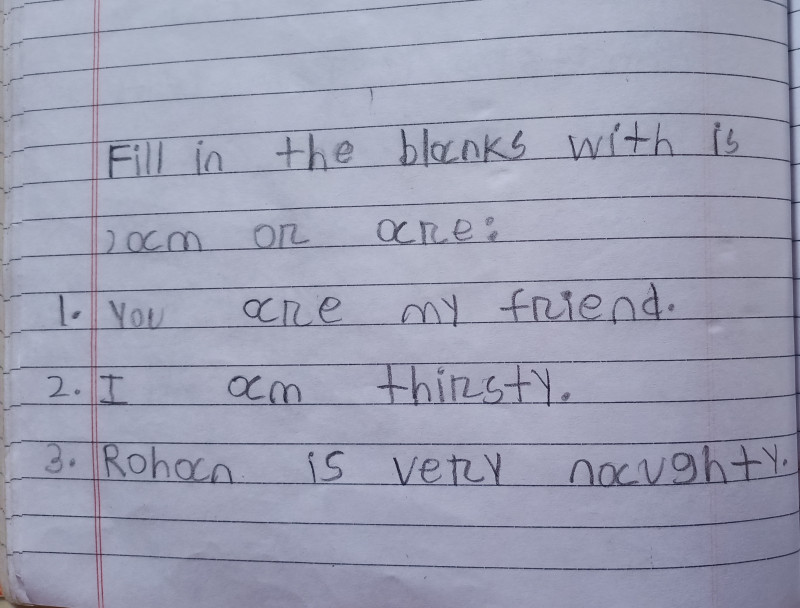 Fill in the blanks with is
, am or are:
1. You are my friend.
2. I am thirsty.
3. Rohan is very naughty.